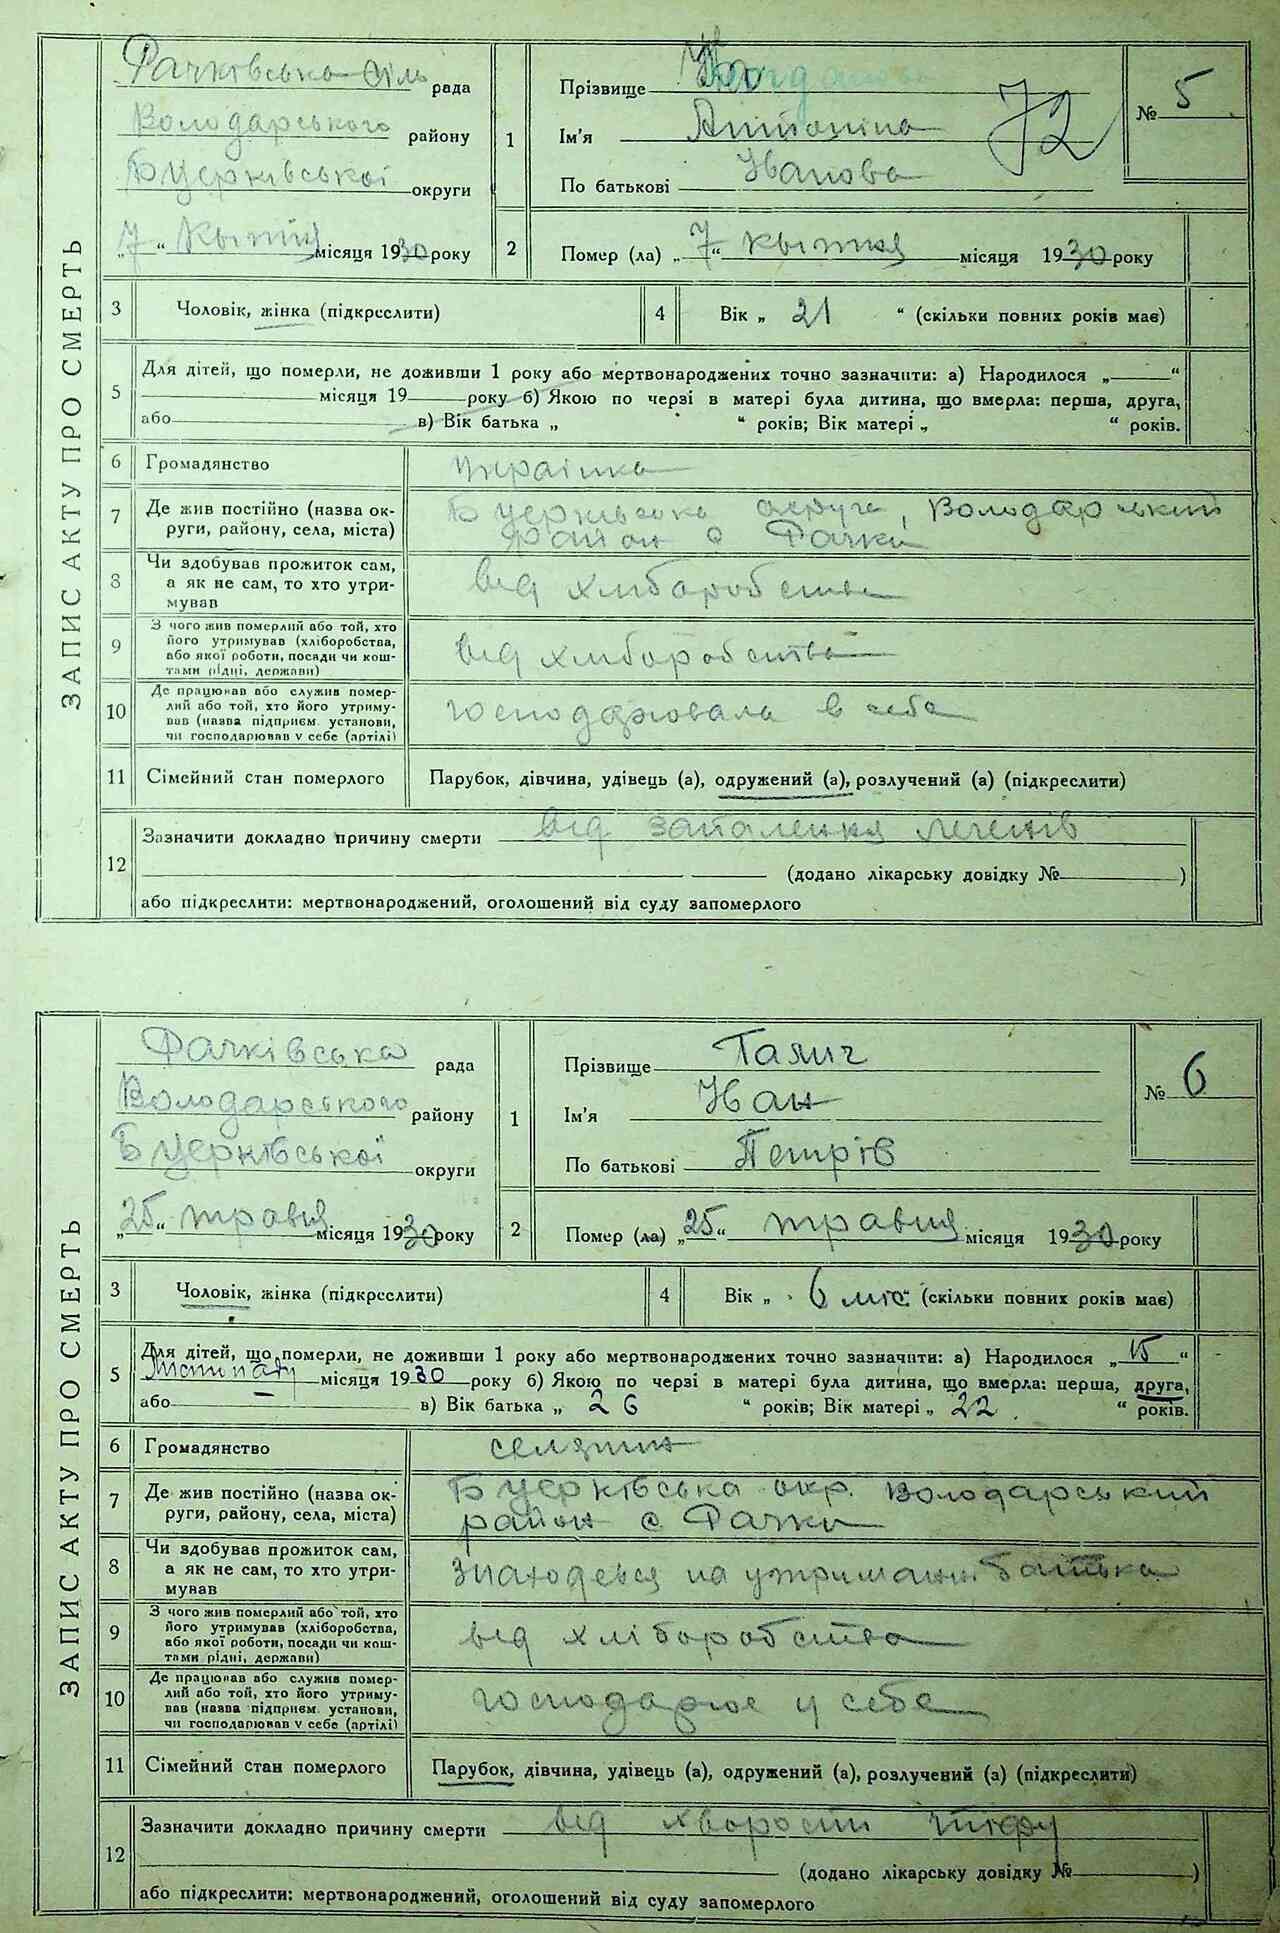 ЗАПИС АКТУ ПРО СМЕРТЬ
Рачківська сіль рада
Володарського району
Бцерківської округи
„7“ Квітня місяця 1930 року
1
Прізвище
Ім'я Антоніна
По батькові Іванова
72
№ 5
2 Помер (ла) „7“ квітня місяця 1930 року
3 Чоловік, жінка (підкреслити)
4 Вік „ 21 “ (скільки повних років має)
5 Для дітей, що померли, не доживши 1 року або мертвонароджених точно зазначити: а) Народилося „ “
місяця 19 року б) Якою по черзі в матері була дитина, що вмерла: перша, друга,
або в) Вік батька „ “ років; Вік матері „ “ років.
6 Громадянство українка
7 Де жив постійно (назва ок-
руги, району, села, міста)
Бцерківська округа, Володарський
район с Рачки
8 Чи здобував прожиток сам,
а як не сам, то хто утри-
мував
від хліборобства
9 З чого жив померлий або той, хто
його утримував (хліборобства,
або якої роботи, посади чи кош-
тами рідні, держави)
від хліборобства
10 Де працював або служив помер-
лий або той, хто його утриму-
вав (назва підприєм. установи,
чи господарював у себе (артілі)
господарювала в себе
11 Сімейний стан померлого Парубок, дівчина, удівець (а), одружений (а), розлучений (а) (підкреслити)
12 Зазначити докладно причину смерти від запалення легенів
(додано лікарську довідку № )
або підкреслити: мертвонароджений, оголошений від суду запомерлого
ЗАПИС АКТУ ПРО СМЕРТЬ
Рачківська рада
Володарського району
Бцерківської округи
„25“ травня місяця 1930 року
1
Прізвище Галич
Ім'я Іван
По батькові Петрів
№ 6
2 Помер (ла) „25“ травня місяця 1930 року
3 Чоловік, жінка (підкреслити)
4 Вік „ 6 міс. (скільки повних років має)
5 Для дітей, що померли, не доживши 1 року або мертвонароджених точно зазначити: а) Народилося „15“
Листопаду місяця 1930 року б) Якою по черзі в матері була дитина, що вмерла: перша, друга,
або в) Вік батька „ 26 “ років; Вік матері „ 22 “ років.
6 Громадянство селянин
7 Де жив постійно (назва ок-
руги, району, села, міста)
Бцерківська окр. Володарський
район с. Рачки
8 Чи здобував прожиток сам,
а як не сам, то хто утри-
мував
знаходевся на утриманні батька
9 З чого жив померлий або той, хто
його утримував (хліборобства,
або якої роботи, посади чи кош-
тами рідні, держави)
від хліборобства
10 Де працював або служив помер-
лий або той, хто його утриму-
вав (назва підприєм. установи,
чи господарював у себе (артілі)
господарює у себе
11 Сімейний стан померлого Парубок, дівчина, удівець (а), одружений (а), розлучений (а) (підкреслити)
12 Зазначити докладно причину смерти від хворости тіфу
(додано лікарську довідку № )
або підкреслити: мертвонароджений, оголошений від суду запомерлого